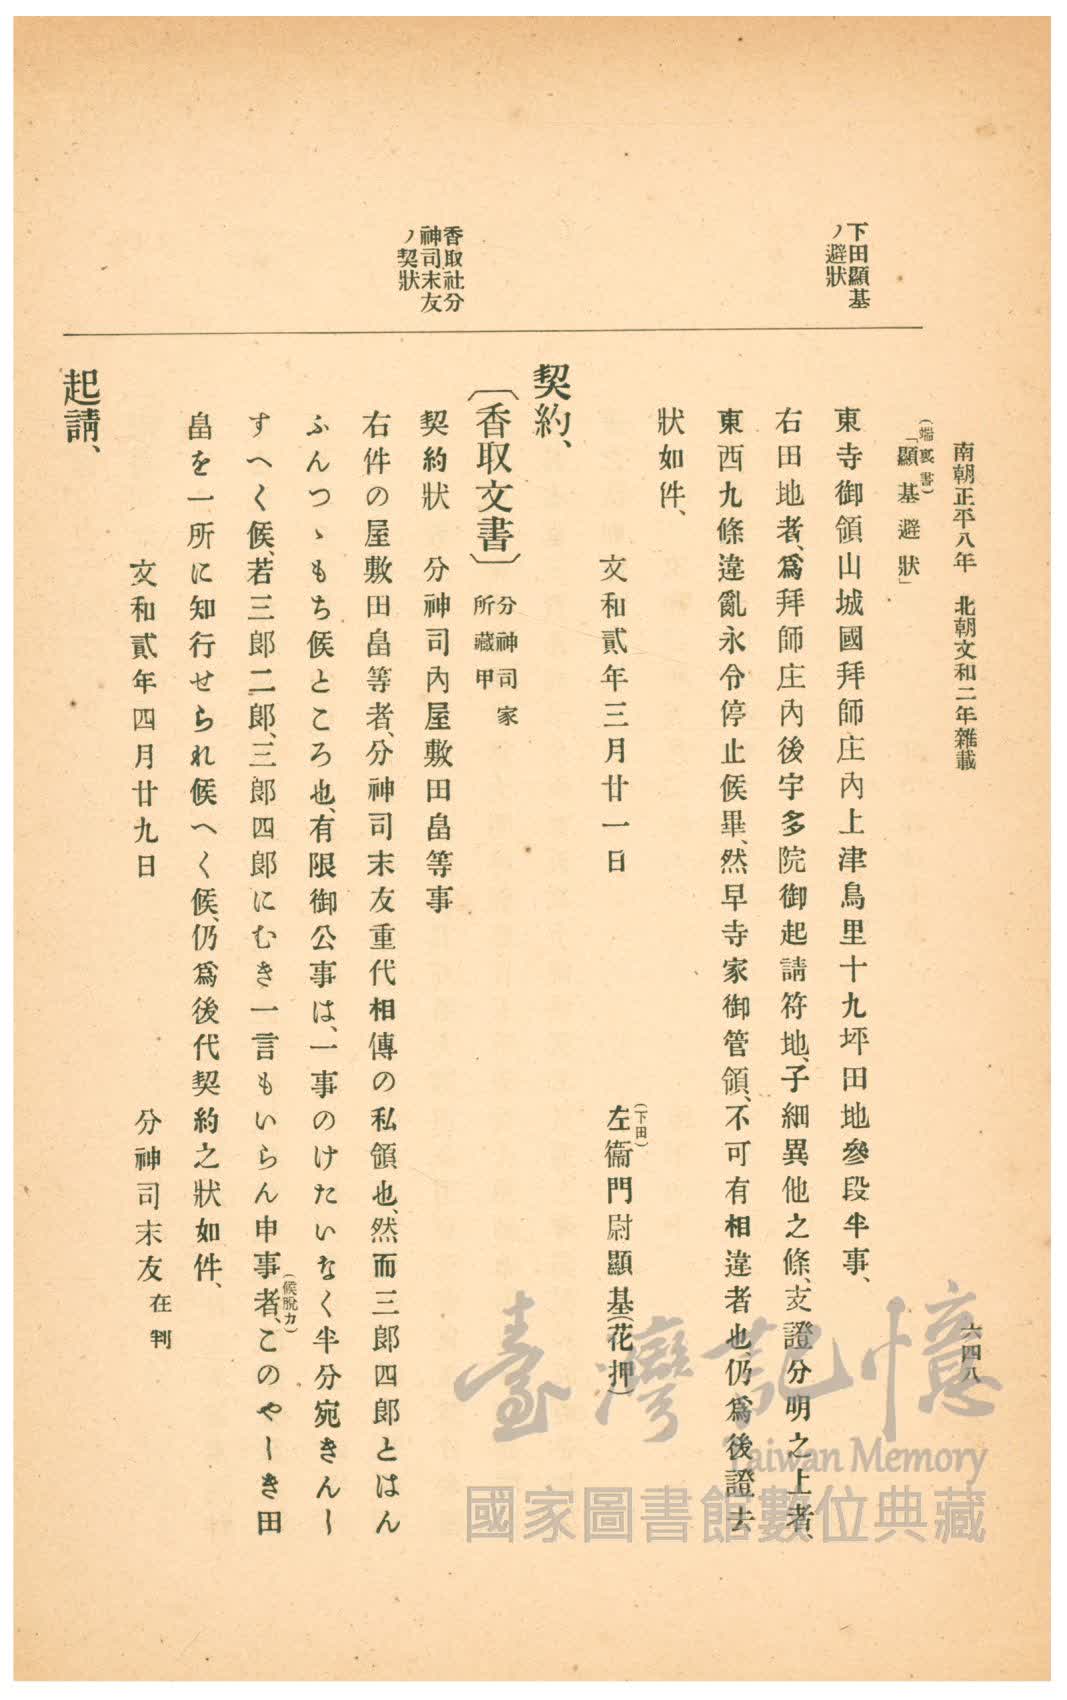 南朝正平八年　北朝文和二年雜載
六四八
下田顯基
ノ避狀
香取社分
神司末友
ノ契狀
(端裏書)
「顯基避狀」
東寺御領山城國拜師庄內上津鳥里十九坪田地參段半事、
右田地者、爲拜師庄內後宇多院御起請符地、子細異他之條、支證分明之上者、
東西九條違亂永令停止候畢、然早寺家御管領、不可有相違者也、仍爲後證去
狀如件、
文和貳年三月廿一日
(下田)
左衞門尉顯基(花押)
契約、
〔香取文書〕分神司家
所藏甲
契約狀　分神司內屋敷田畠等事
右件の屋敷田畠等者、分神司末友重代相傳の私領也、然而三郎四郎とはん
ふんつゝもち候ところ也、有限御公事は、一事のけたいなく半分宛きんし
すへく候、若三郎二郎、三郎四郎にむき一言もいらん申事者、このやしき田
(候脫カ)
畠を一所に知行せられ候へく候、仍爲後代契約之狀如件、
文和貳年四月廿九日
分神司末友在判
起請、
臺灣記憶
Taiwan Memory
國家圖書館數位典藏